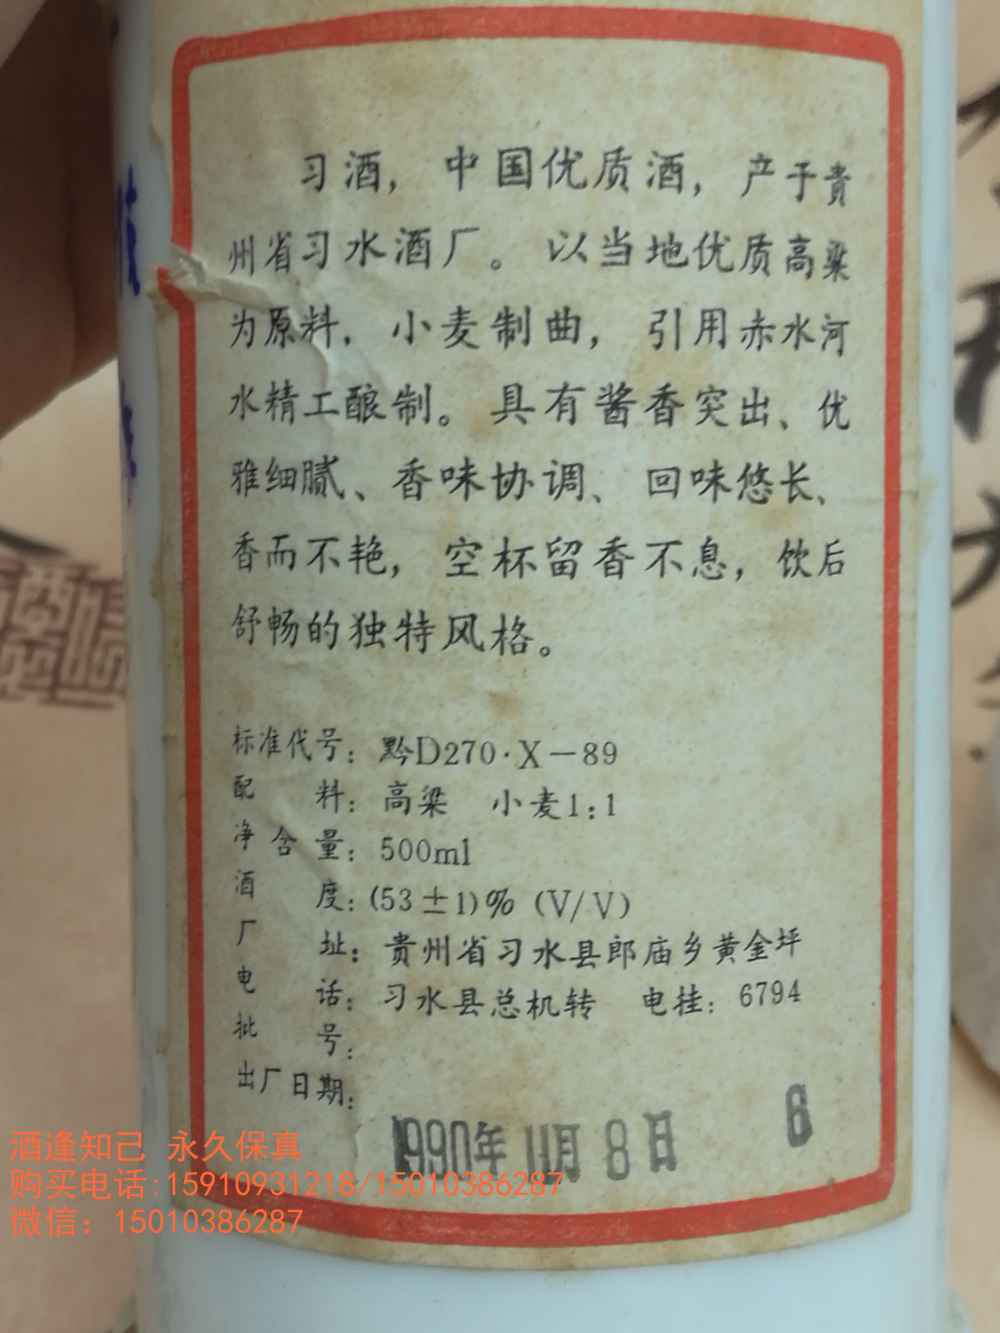 习酒，中国优质酒，产于贵
州省习水酒厂。以当地优质高粱
为原料，小麦制曲，引用赤水河
水精工酿制。具有酱香突出、优
雅细腻、香味协调、回味悠长、
香而不艳，空杯留香不息，饮后
舒畅的独特风格。
标准代号：黔D270·X－89
配料：高粱 小麦1:1
净含量：500ml
酒度：(53±1)%（V/V）
厂址：贵州省习水县郎庙乡黄金坪
电话：习水县总机转 电挂：6794
批号：
出厂日期：
1990年11月8日 6
酒逢知己 永久保真
购买电话:15910931218/15010386287
微信：15010386287